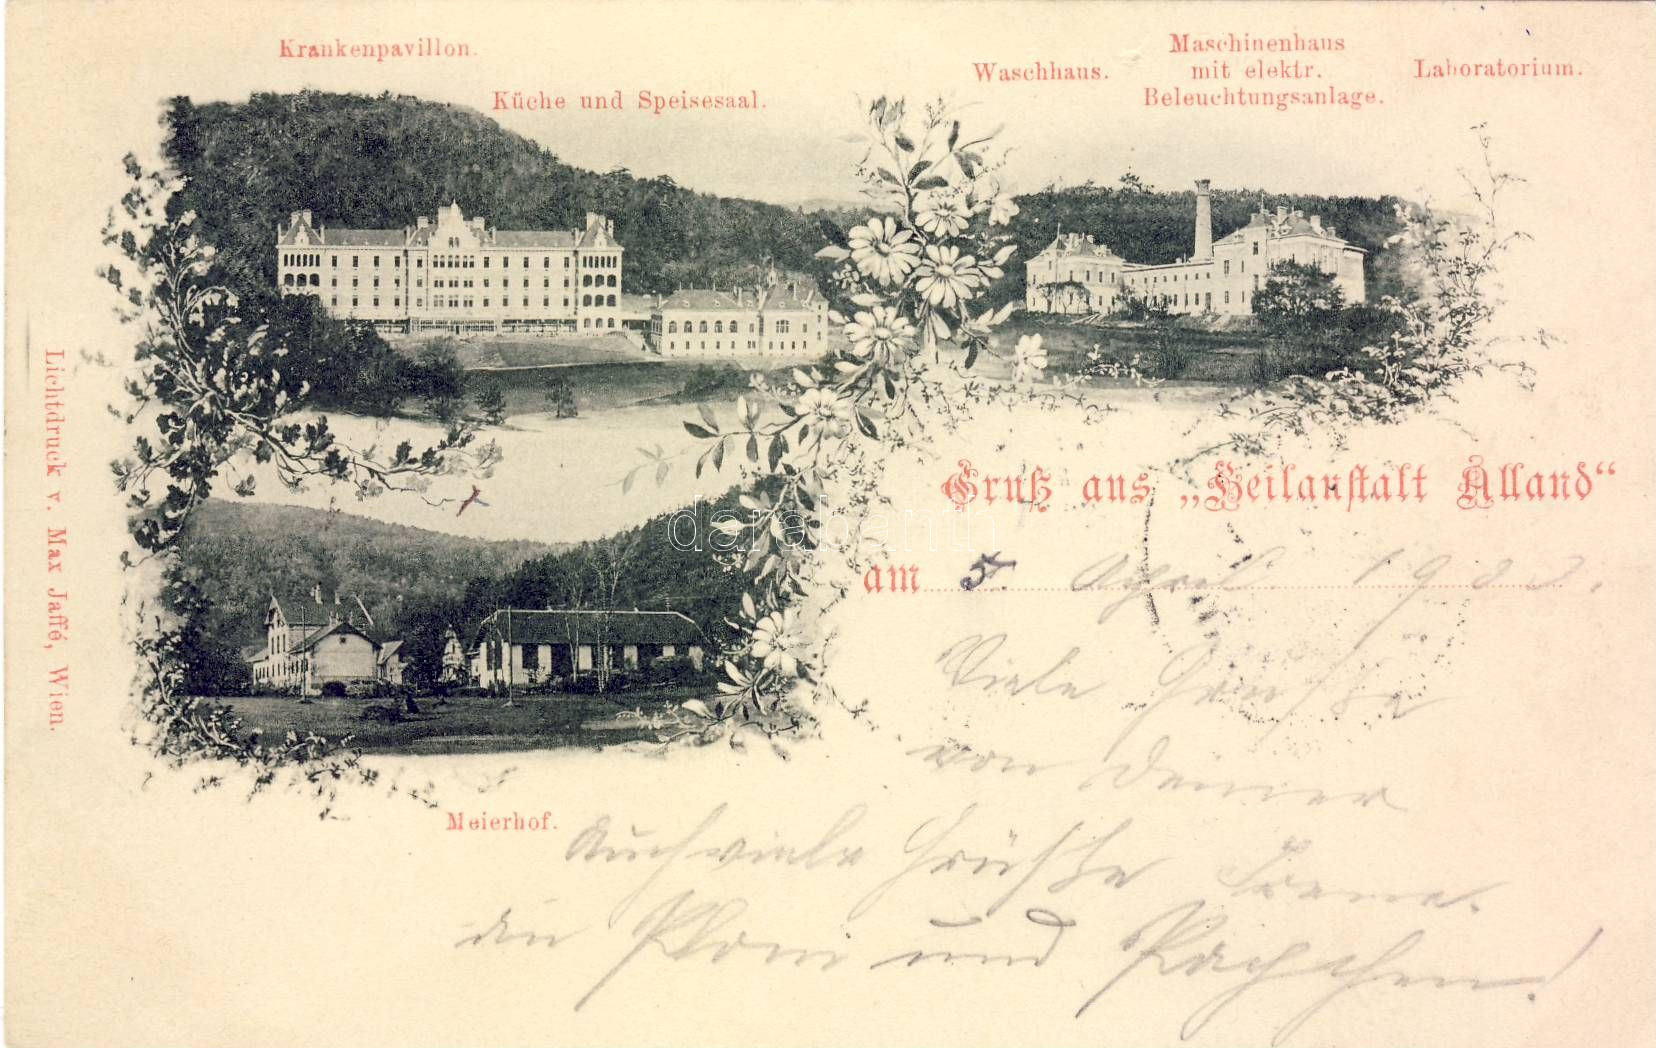 Krankenpavillon.
Küche und Speisesaal.
Waschhaus.
Maschinenhaus
mit elektr.
Beleuchtungsanlage.
Laboratorium.
Lichtdruck v. Max Jaffé, Wien.
Gruß aus „Heilanstalt Alland“
am 5. April 1900.
darabanth
Viele Grüsse
von Deiner
Irene.
Meierhof.
Auch viele Grüsse
an und